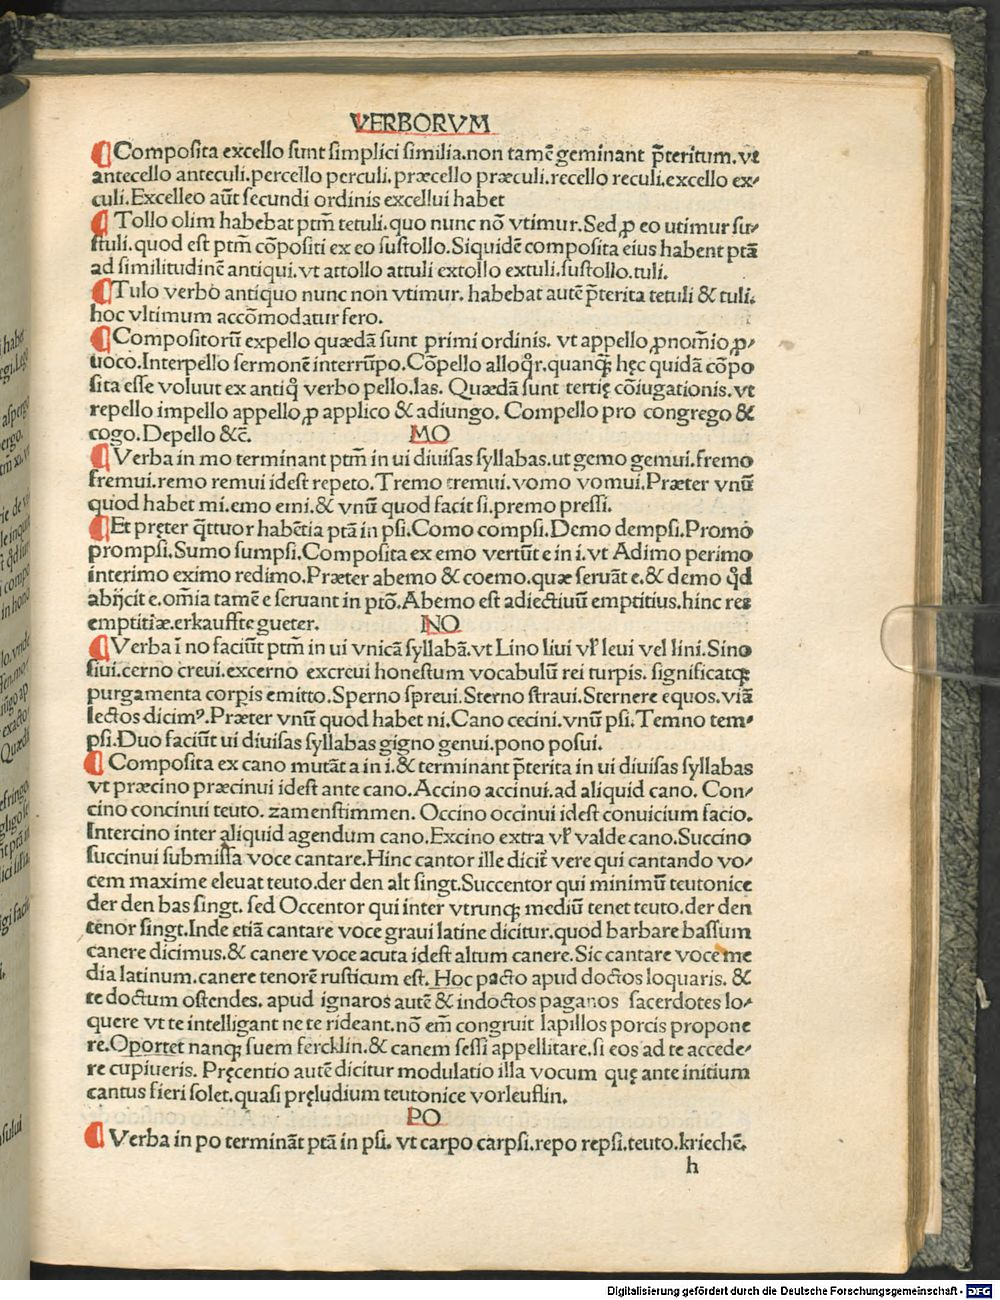 VERBORVM
¶ Compoſita excello ſunt ſimplici ſimilia.non tamē geminant p̄teritum. vt
antecello anteculi.percello perculi.præcello præculi.recello reculi.excello ex⸗
culi.Excelleo aūt ſecundi ordinis excellui habet
¶ Tollo olim habebat ptm̄ tetuli.quo nunc nō vtimur.Sed ꝓ eo utimur ſu⸗
ſtuli.quod eſt ptm̄ cōpoſiti ex eo ſuſtollo.Siquidē compoſita eius habent ptā
ad ſimilitudinē antiqui.vt attollo attuli extollo extuli.ſuſtollo.tuli.
¶ Tulo verbo antiquo nunc non vtimur. habebat autē p̄terita tetuli & tuli.
hoc vltimum accōmodatur fero.
¶ Compoſitorū expello quædā ſunt primi ordinis. vt appello ꝓnomīo ꝓ⸗
uoco.Interpello ſermonē interrūpo.Cōpello alloqr̄.quanqꝫ hęc quidā cōpo
ſita eſſe voluut ex antiq̄ verbo pello.las. Quædā ſunt tertię cōiugationis.vt
repello impello appello ꝓ applico & adiungo. Compello pro congrego &
cogo.Depello &c̄.
MO
¶ Verba in mo terminant ptm̄ in ui diuiſas ſyllabas.ut gemo gemui.fremo
fremui.remo remui ideſt repeto.Tremo tremui.vomo vomui.Præter vnū
quod habet mi.emo emi.& vnū quod facit ſi.premo preſſi.
¶ Et pręter q̄ttuor habētia ptā in pſi.Como compſi.Demo dempſi.Promo
prompſi.Sumo ſumpſi.Compoſita ex emo vertūt e in i.vt Adimo perimo
interimo eximo redimo.Præter abemo & coemo.quæ ſeruāt e.& demo qd̄
abijcit e.om̄ia tamē e ſeruant in ptō.Abemo eſt adiectiuū emptitius.hinc res
emptitiæ.erkauffte gueter.
NO
¶ Verba ī no faciūt ptm̄ in ui vnicā ſyllabā.vt Lino liui vł leui vel lini.Sino
ſiui.cerno creui.excerno excreui honeſtum vocabulū rei turpis. ſignificatqꝫ
purgamenta corpis emitto.Sperno ſpreui.Sterno ſtraui.Sternere equos.viā
lectos dicimꝰ.Præter vnū quod habet ni.Cano cecini.vnū pſi.Temno tem⸗
pſi.Duo faciūt ui diuiſas ſyllabas gigno genui.pono poſui.
¶ Compoſita ex cano mutāt a in i.& terminant p̄terita in ui diuiſas ſyllabas
vt præcino præcinui ideſt ante cano.Accino accinui.ad aliquid cano. Con⸗
cino concinui teuto. zamenſtimmen. Occino occinui ideſt conuicium facio.
Intercino inter aliquid agendum cano.Excino extra vł valde cano.Succino
ſuccinui ſubmiſſa voce cantare.Hinc cantor ille dicit̄ vere qui cantando vo⸗
cem maxime eleuat teuto.der den alt ſingt.Succentor qui minimū teutonice
der den bas ſingt. ſed Occentor qui inter vtrunqꝫ mediū tenet teuto.der den
tenor ſingt.Inde etiā cantare voce graui latine dicitur.quod barbare baſſum
canere dicimus.& canere voce acuta ideſt altum canere.Sic cantare voce me
dia latinum.canere tenorē ruſticum eſt. Hoc pacto apud doctos loquaris. &
te doctum oſtendes. apud ignaros autē & indoctos paganos ſacerdotes lo⸗
quere vt te intelligant ne te rideant.nō em̄ congruit lapillos porcis propone
re.Oportet nanqꝫ ſuem fercklin.& canem ſeſſi appellitare.ſi eos ad te accede⸗
re cupiueris. Pręcentio autē dicitur modulatio illa vocum quę ante initium
cantus fieri ſolet.quaſi pręludium teutonice vorleuflin.
PO
¶ Verba in po termināt ptā in pſi. vt carpo carpſi.repo repſi.teuto.kriechē.
h
Digitalisierung gefördert durch die Deutsche Forschungsgemeinschaft - DFG